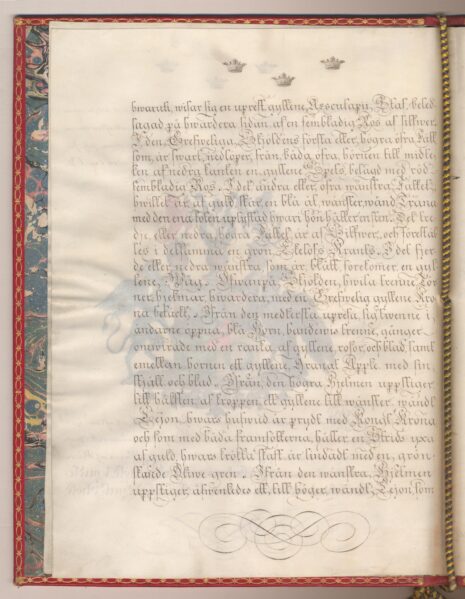 hwarutj, wisar sig en uprett gyllene, Æsculapij Staf, beled-
sagad på hwardera sidan af en sembladig Ros af silfwer.
I den Grefweliga Skjöldens första eller högra öfra Fält
som är swart, nedlöper, från båda öfra, hörnen till midde-
len af nedra kanten en gyllene Spets, belagd med röd
sembladig Ros. I det andra eller öfra wänstra Fältet,
hwilket är af guld, står en blå, åt wänster wänd Trana
med den ena foten uplyftad hwari hon håller en sten. Det tre-
dje eller nedra högra Fältet är af Silfwer, och förestäl-
les i detsamma en grön Eklöfs Krants. I det fjer-
de eller nedra wänstra, som är blått, förekomer en gyl-
lene Wåg. Ofwanpå Skjölden, hwila trenne Tor-
ner-hjelmar, hwardera, med en Grefwelig gyllene Kro-
na betäckt. Ifrån den medlersta upresa sig twenne i
ändarne öpna, blå Horn, handewis trenne gånger
omwirade med en ranka af gyllene rosor och blad, samt
emellan hornen ett gyllene Granat Äpple med sin
stjälk och blad. Ifrån den högra hjelmen uppstiger
till hälften af kroppen ett gyllene till wänster wändt
Lejon, hwars hufwud är prydt med Kongl. Krona
och som med båda framfötterna, håller en Strids yxa
af guld, hwars krökta skaft är lindadt med en, grön-
skande Oliwe-gren. Ifrån den wänstra Hjelmen
uppstiger, ähwenledes ett, till höger wändt, Lejon, som